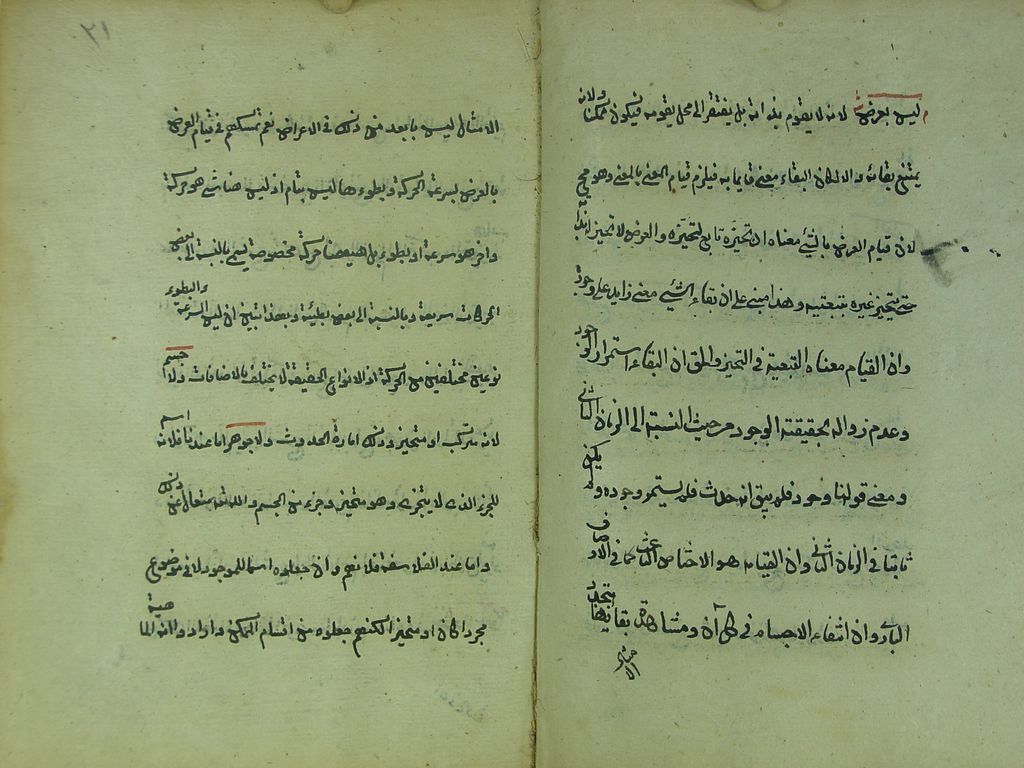 ليس بعرض لانه لا يقوم بذاته بل يفتقر الى محل يقومه فيكون ممكنا ولانه
يمتنع بقاؤه والا لكان البقاء معنى قايما به فيلزم قيام المعنى بالمعنى وهو مح
لان قيام العرض بالشئ معناه ان تحيزه تابع لتحيزه والعرض لا تحيز له بذاته
حتى يتحيز غيره بتبعيته وهذا مبنى على ان بقاء الشئ معنى زايد على وجوده
وان القيام معناه التبعية فى التحيز والحق ان البقاء استمرار الوجود
وعدم زواله بحقيقته الوجود من حيث النسبة الى الزمان الثانى
ومعنى قولنا وجود فلم يبق انه حدث فلم يستمر وجوده ولم يكن
ثابتا فى الزمان الثانى وان القيام هو الاختصاص الناعت كما فى اوصاف
البارى وان انتفاء الاجسام فى كل آن ومشاهدة بقائها بتجدد
الامثال
٢١
الامثال ليس بابعد من ذلك فى الاعراض نعم تمسكهم فى قيام العرض
بالعرض بسرعة الحركة وبطوءها ليس بتام اذ ليس هنا شئ هو حركة
واخر هو سرعة او بطوء بل هيهنا حركة مخصوصة تسمى بالنسبة الى بعض
الحركات سريعة وبالنسبة الى بعض بطيئة وبهذا تبين ان ليس السرعة والبطوء
نوعين مختلفين من الحركة اذ الانواع الحقيقة لا يختلف بالاضافات ولا جسم
لانه متركب او متحيز وذلك امارة الحدوث ولا جوهر اما عندنا فلانه اسم
للجزء الذى لا يتجزى وهو متحيز وجزء من الجسم والله تعه متعال عن ذلك
واما عند الفلاسفة فلانهم وان جعلوه اسما للموجود لا فى موضوع
مجردا كان او متحيزا لكنهم جعلوه من اقسام الممكن وارادوا به الماهية